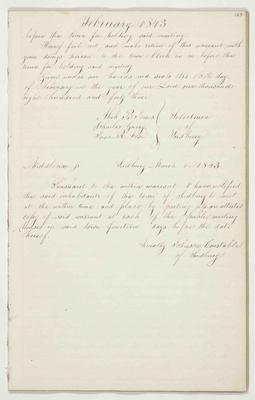 February 1843
before the time for holding said meeting.
Hereof fail not and make return of this warrant with
your doings thereon to the Town Clerk on or before the
time for holding said meeting.
Given under our hands and seals this 13th day
of February in the year of our Lord one thousand
eight hundred and forty three
Selectmen
of
Sudbury
Middlesex ss Sudbury March 1843
Pursuant to the within warrant I have notified
the said inhabitants of the town of Sudbury to meet
at the within time and place by posting up an attested
copy of said warrant at each of the public meeting
Houses in said town fourteen days before the date
hereof.
Constable
of Sudbury